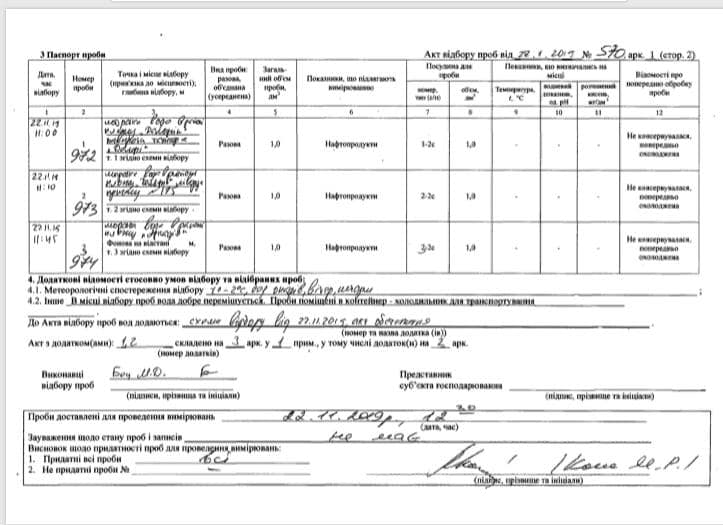 3 Паспорт проби
Акт відбору проб від 22.11.2019 № 570 арк. 1 (стор. 2)
Дата, час відбору
Номер проби
Точка і місце відбору (прив'язка до місцевості), глибина відбору, м
Вид проби: разова, об'єднана (усереднена)
Загальний об'єм проби, дм³
Показники, що підлягають вимірюванню
Посудина для проби
номер, тип
об'єм, дм³
Показники, що визначались на місці
Температура, t, °С
водневий показник, од. рН
розчинений кисень, мг/дм³
Відомості про попередню обробку проби
1 2 3 4 5 6 7 8 9 10 11 12
22.11.19
11:00
1
972
т. 1 згідно схеми відбору
Разова
1,0
Нафтопродукти
1-2с
1,0
- - -
Не консервувалася, попередньо охолоджена
22.11.19
11:10
2
973
т. 2 згідно схеми відбору
Разова
1,0
Нафтопродукти
2-2с
1,0
- - -
Не консервувалася, попередньо охолоджена
22.11.19
11:45
3
974
Фонова на відстані м,
т. 3 згідно схеми відбору
Разова
1,0
Нафтопродукти
3-2с
1,0
- - -
Не консервувалася, попередньо охолоджена
4. Додаткові відомості стосовно умов відбору та відібраних проб:
4.1. Метеорологічні спостереження відбору
4.2. Інше В місці відбору проб вода добре перемішується. Проби поміщені в контейнер - холодильник для транспортування
До Акта відбору проб вод додаються: схема відбору від 22.11.2019, акт обстеження
(номер та назва додатка (ів))
Акт з додатком(ами): 1,2 складено на 3 арк. у 1 прим., у тому числі додаток(и) на 2 арк.
(номер додатків)
Виконавці
відбору проб
(підписи, прізвища та ініціали)
Представник
суб'єкта господарювання
(підпис, прізвище та ініціали)
Проби доставлені для проведення вимірювань 22.11.2019р, 12 30
(дата, час)
Зауваження щодо стану проб і записів не має
Висновок щодо придатності проб для проведення вимірювань:
1. Придатні всі проби всі
2. Не придатні проби № –
(підпис, прізвище та ініціали)